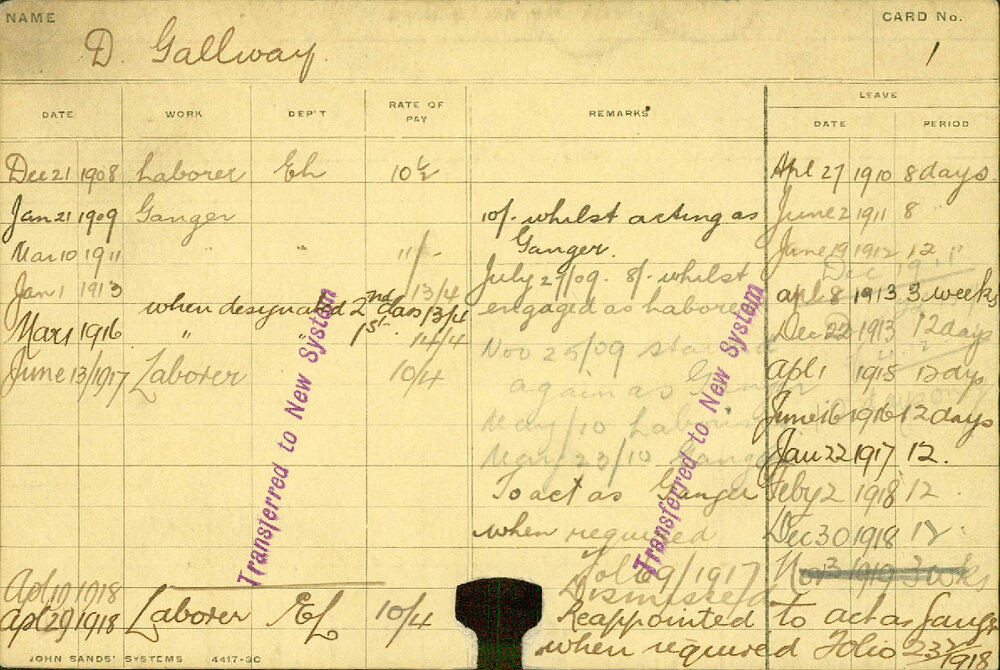 NAME
CARD No.
D. Gallway
1
DATE WORK DEP'T RATE OF PAY REMARKS LEAVE
DATE PERIOD
Dec 21 1908 Laborer Eh 10/- Apl 27 1910 8 days
Jan 21 1909 Ganger 10/- whilst acting as June 2 1911 8 "
Mar 10 1911 " " 11/- Ganger. June 19 1912 12 "
Dec 1911
Jan 1 1913 13/4 July 27/09. 8/- whilst
when designated 2nd class 13/4 engaged as laborer apl 8 1913 3 weeks
Mar 1 1916 " " 1st. 14/4 Dec 22 1913 12 days
June 13/1917 Laborer 10/4 Nov 25/09 apl 1 1915 12 days
again as
May/10 June 16 1916 12 days
May 23/10 Jan 22 1917 12.
To act as Ganger Feby 2 1918 12
when required Dec 30 1918 12
Fol 69/1917 3 wks
Apl 10 1918 Dismissed
Apl 29/1918 Laborer EL 10/4 Reappointed to act as Ganger
when required Folio 233/1918
Transferred to New System
Transferred to New System
JOHN SANDS' SYSTEMS 4417-3C